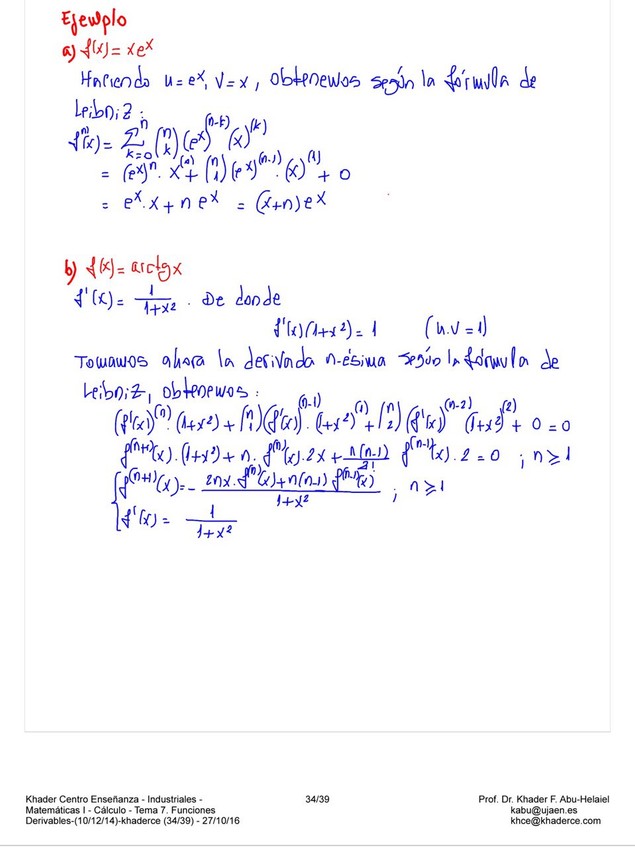 Ejemplo
a) f(x) = xe^x
Haciendo u = e^x, v = x, obtenemos según la fórmula de
Leibniz:
f^(n)(x) = Σ_{k=0}^{n} (n k) (e^x)^(n-k) (x)^(k)
= (e^x)^n · x^(0) + (n 1) (e^x)^(n-1) · (x)^(1) + 0
= e^x · x + n e^x = (x+n) e^x
b) f(x) = arctg x
f'(x) = 1/(1+x²) . De donde
f'(x)(1+x²) = 1 (u.v = 1)
Tomamos ahora la derivada n-ésima según la fórmula de
Leibniz, obtenemos:
(f'(x))^(n) · (1+x²) + (n 1) (f'(x))^(n-1) · (1+x²)^(1) + (n 2) (f'(x))^(n-2) (1+x²)^(2) + 0 = 0
f^(n+1)(x) · (1+x²) + n · f^(n)(x) · 2x + n(n-1)/2! f^(n-1)(x) · 2 = 0 ; n ≥ 1
{ f^(n+1)(x) = - (2nx · f^(n)(x) + n(n-1) f^(n-1)(x))/(1+x²) ; n ≥ 1
f'(x) = 1/(1+x²)
Khader Centro Enseñanza - Industriales - 34/39 Prof. Dr. Khader F. Abu-Helaiel
Matemáticas I - Cálculo - Tema 7. Funciones kabu@ujaen.es
Derivables-(10/12/14)-khaderce (34/39) - 27/10/16 khce@khaderce.com